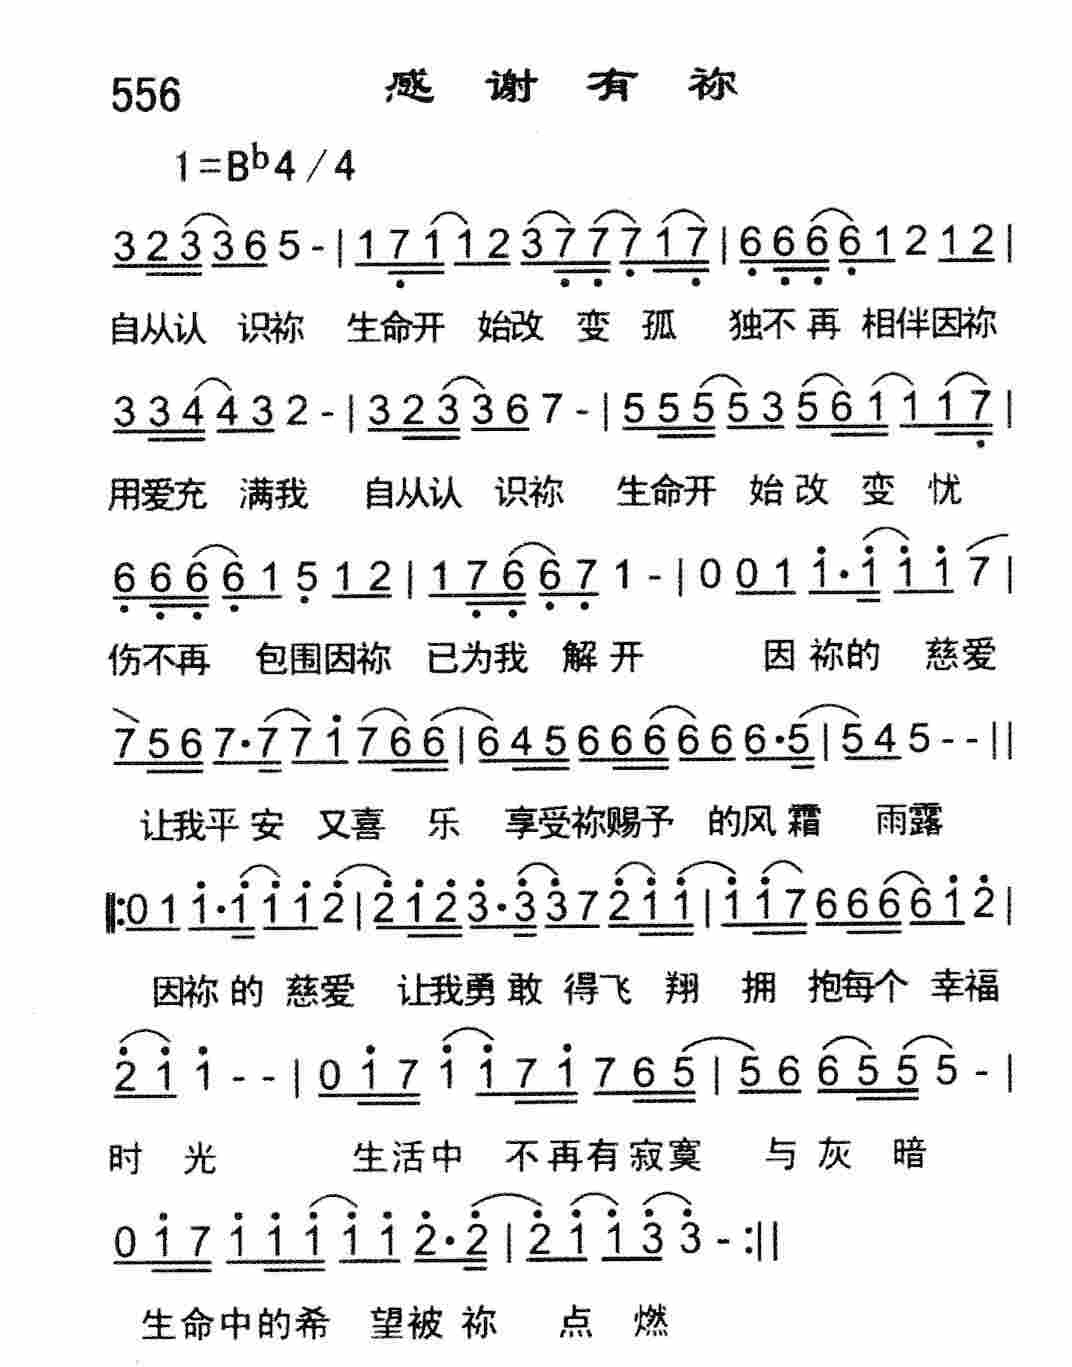 556 感谢有祢
1=Bb4/4
3 2 3 3 6 5 - | 1 7 1 1 2 3 7 7 7 1 7 | 6 6 6 6 1 2 1 2 |
自从认 识祢 生命开 始改 变 孤 独不再 相伴因祢
3 3 4 4 3 2 - | 3 2 3 3 6 7 - | 5 5 5 5 3 5 6 1 1 1 7 |
用爱充 满我 自从认 识祢 生命开 始改 变 忧
6 6 6 6 1 5 1 2 | 1 7 6 6 7 1 - | 0 0 1 1· 1 1 1 7 |
伤不再 包围因祢 已为我 解开 因祢的 慈爱
7 5 6 7· 7 7 1 7 6 6 | 6 4 5 6 6 6 6 6 6· 5 | 5 4 5 - - ||
让我平安 又喜 乐 享受祢赐予 的风霜 雨露
‖: 0 1 1· 1 1 1 2 | 2 1 2 3· 3 3 7 2 1 1 | 1 1 7 6 6 6 6 1 2 |
因祢的 慈爱 让我勇敢 得飞 翔 拥 抱每个 幸福
2 1 1 - - | 0 1 7 1 1 7 1 7 6 5 | 5 6 6 5 5 5 - |
时 光 生活中 不再有寂寞 与灰 暗
0 1 7 1 1 1 1 1 2· 2 | 2 1 1 3 3 - :||
生命中的希 望被祢 点 燃